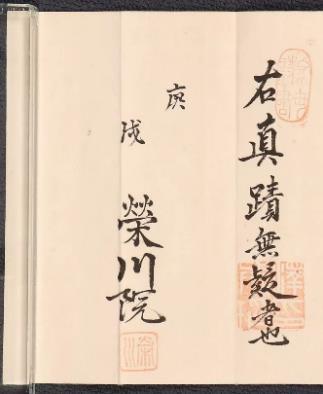 右真蹟無疑者也
庚
戌
榮川院